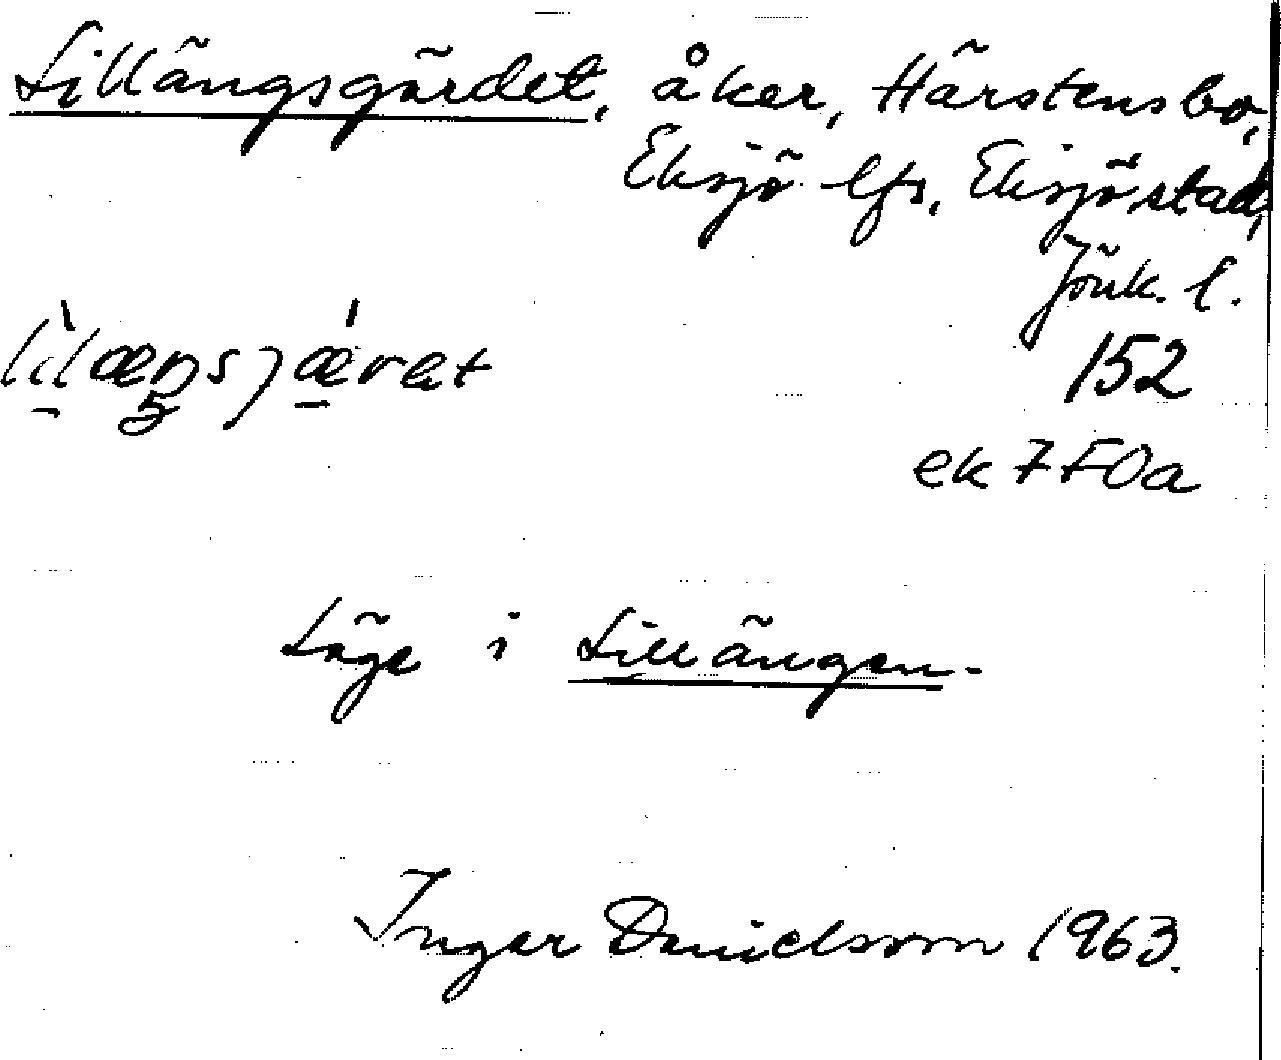 Lillängsgärdet, åker, Härstensbo,
Eksjö lfs, Eksjö stad,
Jönk. l.
lìlæŋsjǽrət
152
ek 7F0a
Läge i Lillängen.
Inger Danielsson 1963.